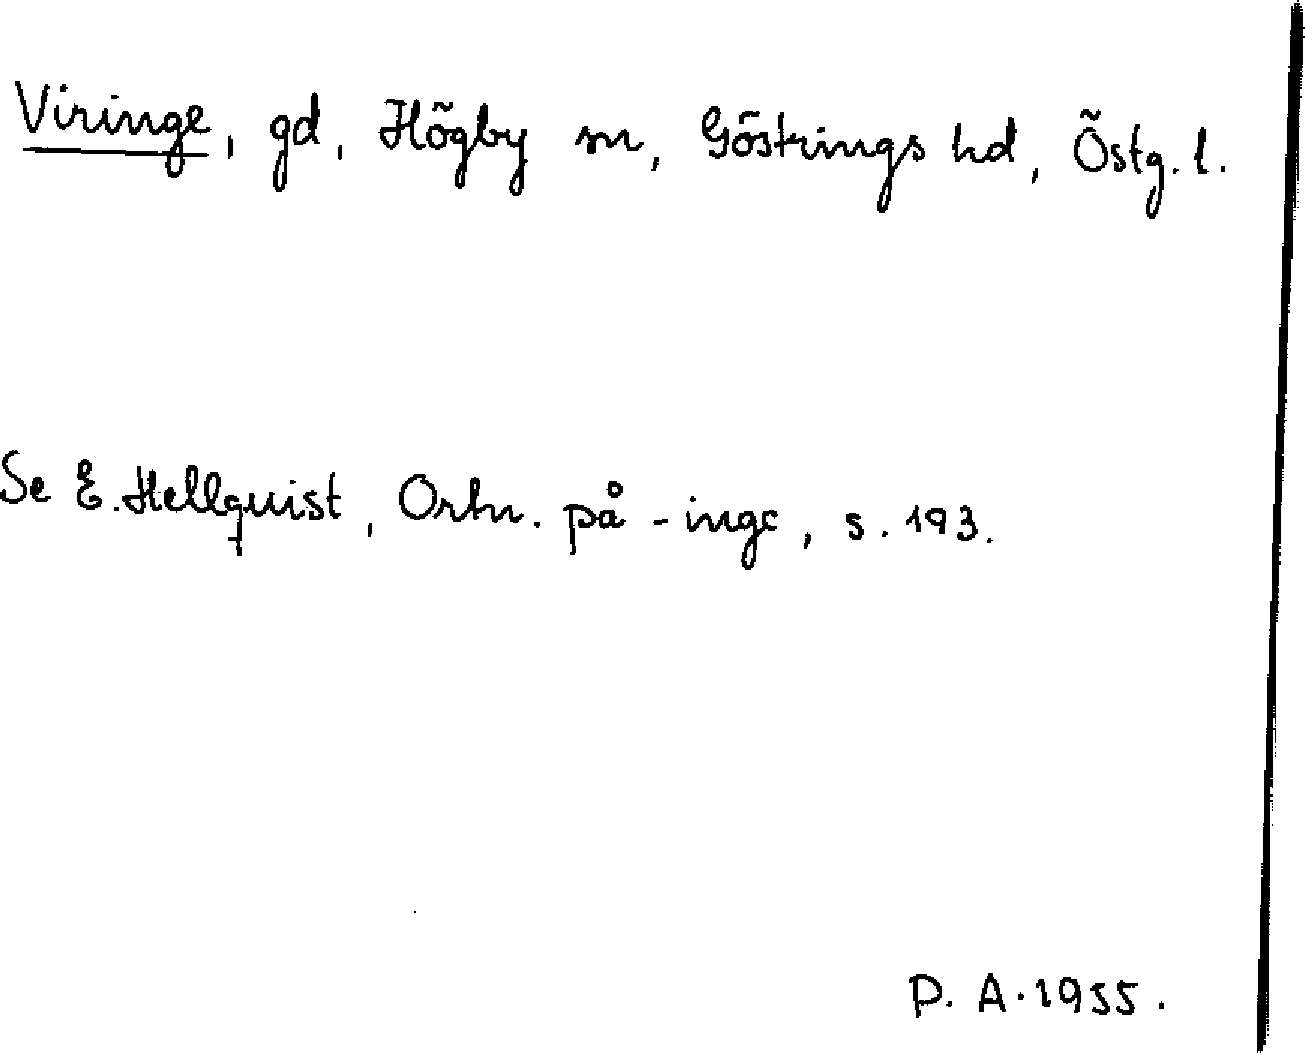 Viringe, gd, Högby sn, Göstrings hd, Östg. l.
Se E. Hellquist, Ortn. på -inge, s. 193.
P. A. 1955.